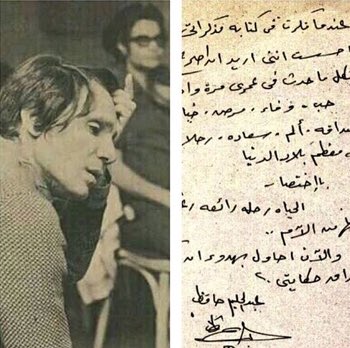 عندما فكرت فى كتابة مذكراتى
احسست اننى اريد ان اصر
كل ما حدث فى عمرى مرة وا
حب . وفاء . مرض . خيا
صداقه . ألم . سعاده . رحلا
معظم بلاد الدنيا
بإختصار
الحياه رحله رائعه
من الألم ..
والآن احاول بهدوء ان
حكايتى ..
عبدالحليم حافظ